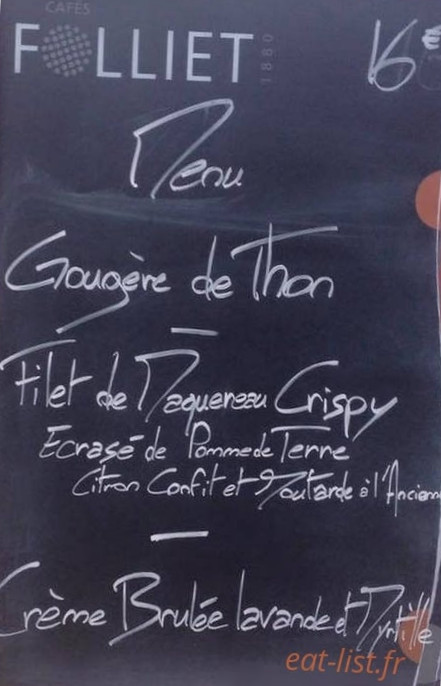 CAFÉS
FOLLIET 1880
16 €
Menu
Gougère de Thon
Filet de Maquereau Crispy
Ecrasé de Pomme de Terre
Citron Confit et Moutarde à l'Ancienne
Crème Brulée lavande et Myrtille
eat-list.fr